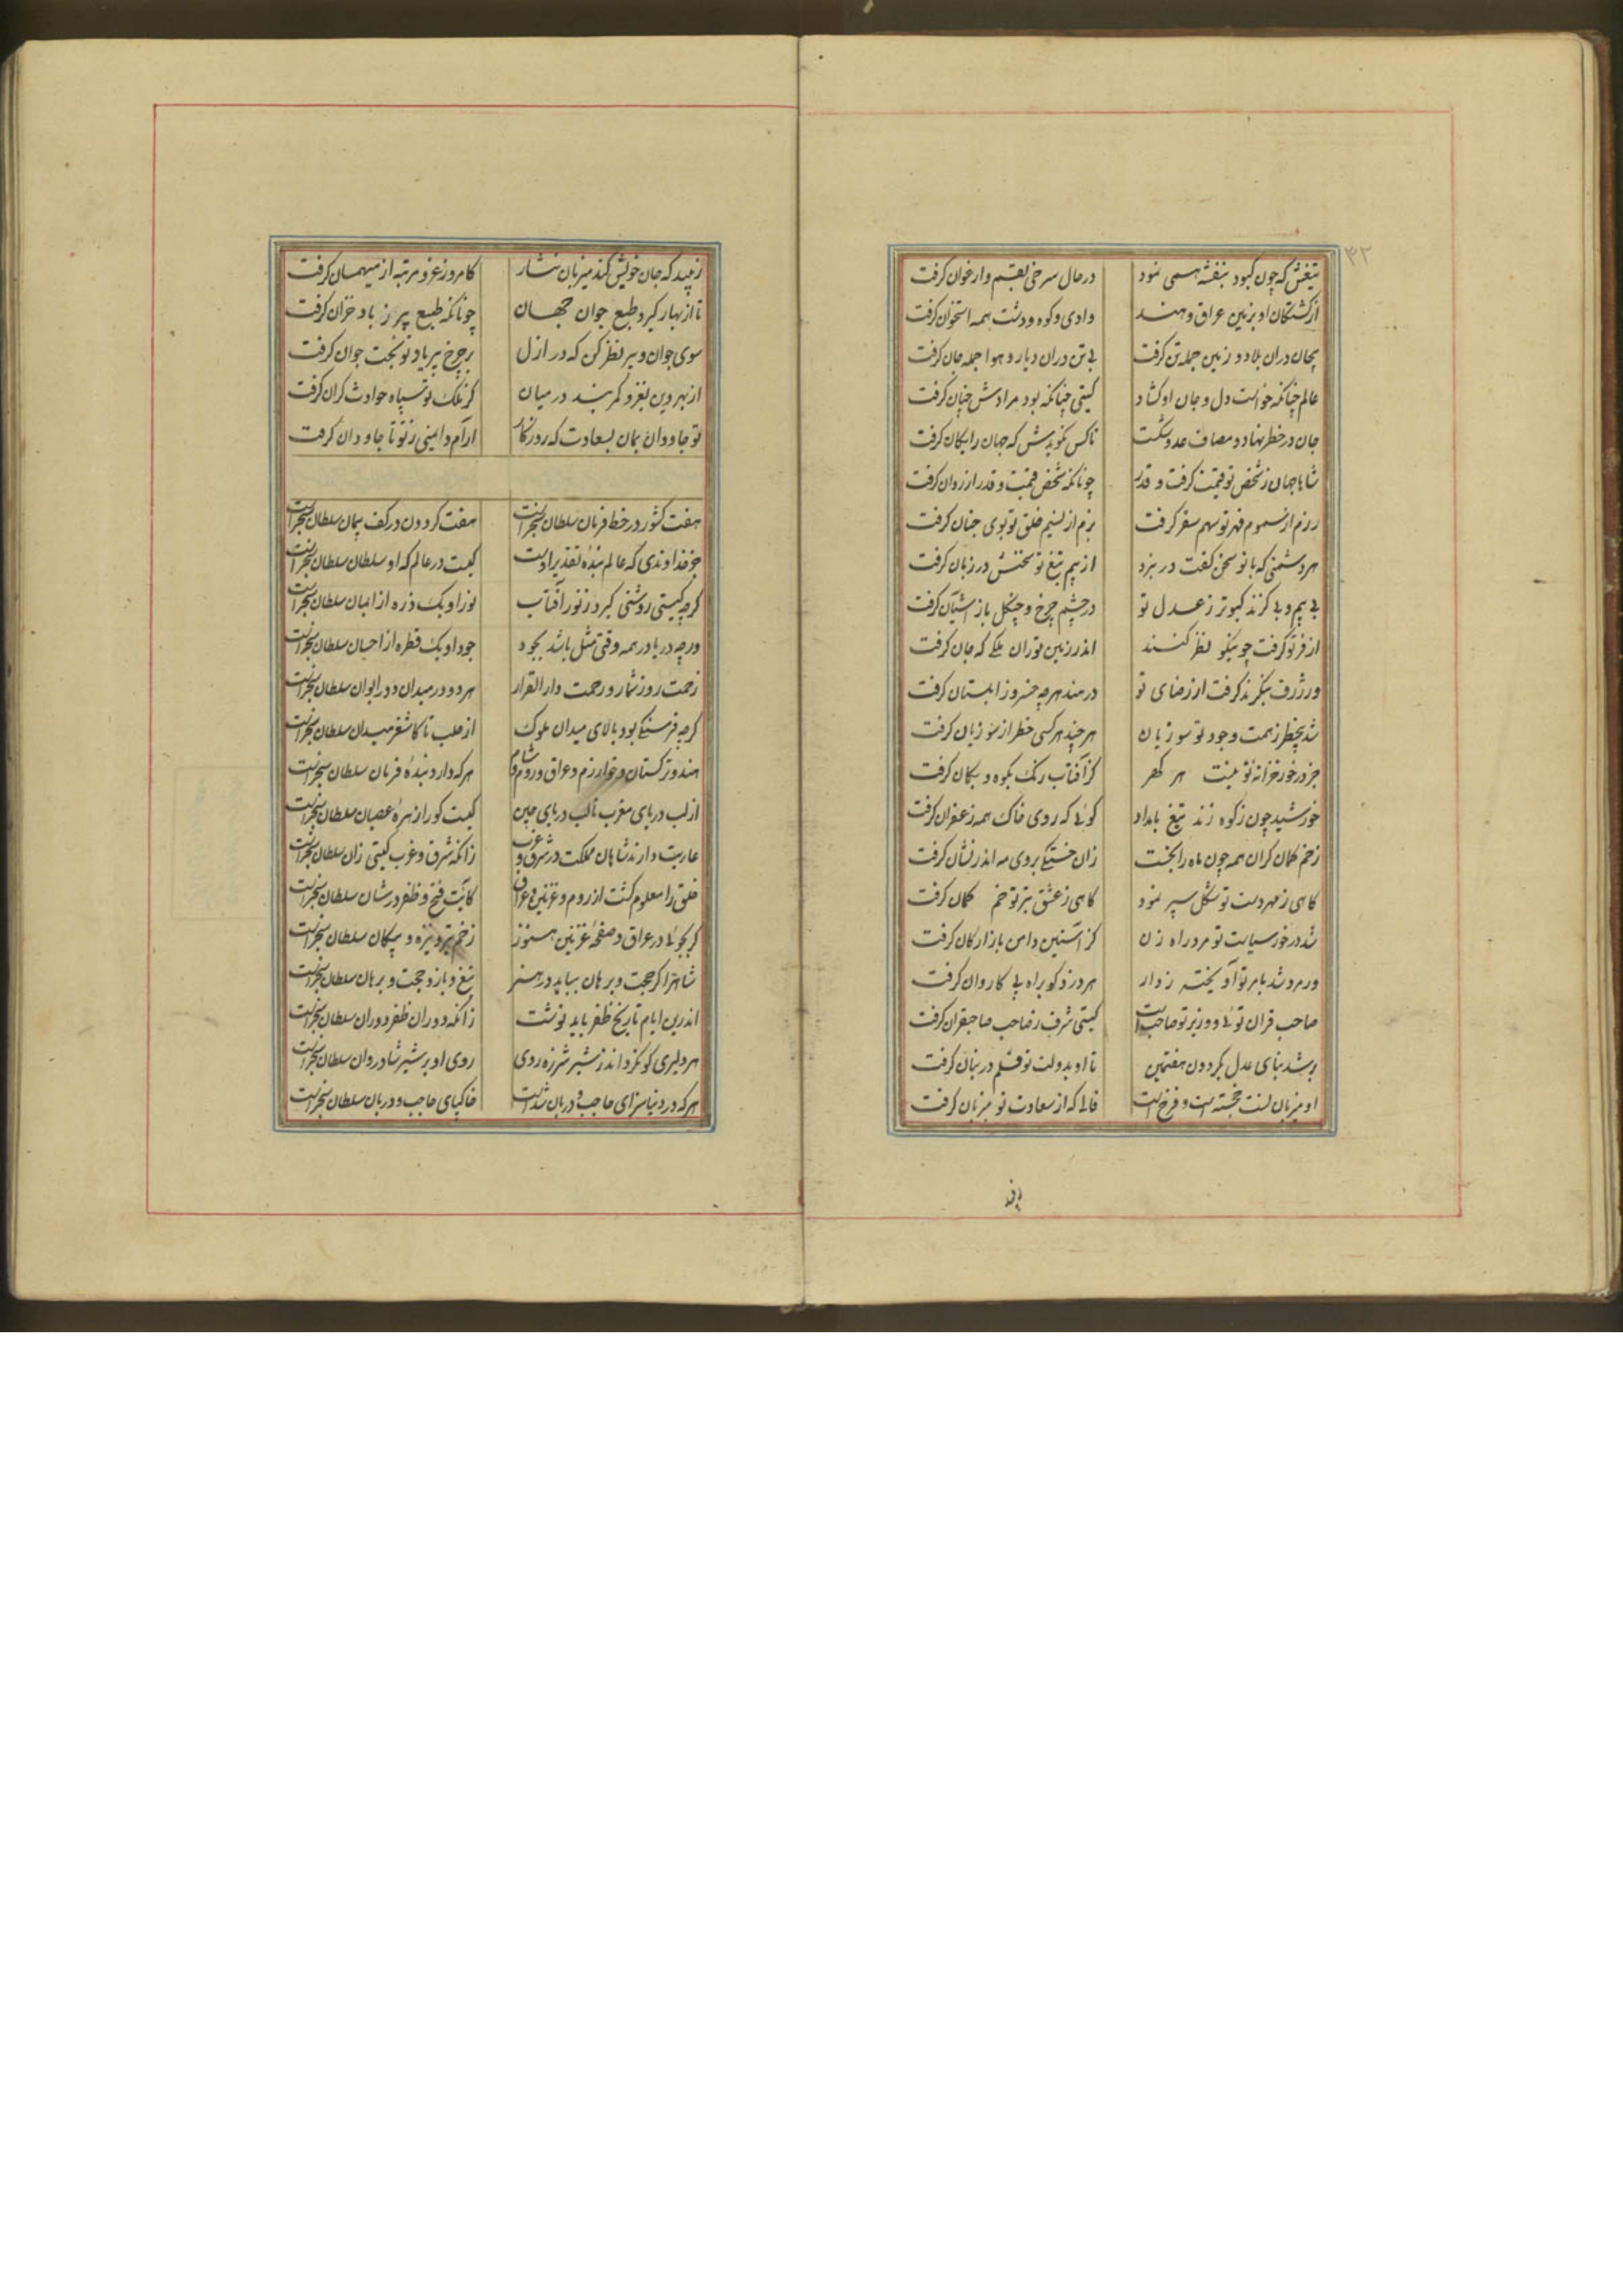 ۳۲
تیغش که چون کبود بنفشه همی نمود در حال سرخی بقم و ارغوان گرفت
از کشتگان او بزمین عراق و هند وادی و کوه و دشت همه استخوان گرفت
بیجان دران بلاد و زمین جمله تن گرفت بی تن دران دیار و هوا جمله جان گرفت
عالم چنانکه خواست دل و جان او گشاد گیتی چنانکه بود مرادش چنان گرفت
جان در خطر نهاد و مصاف عدو شکست تا کس نگویدش که جهان رایگان گرفت
شاها جهان ز شخص تو قیمت گرفت و قدر چونانکه شخص قیمت و قدر از روان گرفت
رزم از سموم قهر تو سهم سقر گرفت بزم از نسیم خلق تو بوی جنان گرفت
هر دشمنی که با تو سخن گفت در نبرد از بیم تیغ تو سخنش در زبان گرفت
بی بیم و بی گزند کبوتر ز عدل تو در چشم چرخ و چنگل باز آشیان گرفت
از فر تو گرفت چو نیکو نظر کنند اندر زمین توران ملکی که خان گرفت
ور ژرف بنگرند گرفت از رضای تو در هند هرچه خسرو زابلستان گرفت
شد بیخطر ز همت وجود تو سوزیان هر چند هر کسی خطر از سوزیان گرفت
جز در خور خزانه تو نیست هر گهر کز آفتاب رنگ بکوه و بکان گرفت
خورشید چون ز کوه زند تیغ بامداد گوئی که روی خاک همه زعفران گرفت
زخم کمان گران همه چون ماه را بخست زان خستگی بروی مه اندر نشان گرفت
گاهی ز مهر دست تو شکل سپر نمود گاهی ز عشق تیر تو خم کمان گرفت
شد در خور سیاست تو مرد راه زن کز آستین و دامن بازارگان گرفت
ور مرد شد بامر تو آویخته ز دار هر دزد کو براه پی کاروان گرفت
صاحب قران توئی و وزیر تو صاحب است گیتی شرف ز صاحب صاحبقران گرفت
بر شد بنای عدل بگردون هفتمین تا او بدولت تو قلم در بنان گرفت
او میزبان تست خجسته است و فرخ است فالی که از سعادت تو میزبان گرفت
زیبد که جان خویش کند میزبان نثار کامروز عز و مرتبه از میهمان گرفت
تا از بهار گیرد طبع جوان جهان چونانکه طبع پیر ز باد خزان گرفت
سوی جوان و پیر نظر کن که در ازل بر چرخ پیر یاد تو بخت جوان گرفت
از بهر دین بغزو کمر بند در میان کز ملک تو سپاه حوادث کران گرفت
تو جاودان بمان بسعادت که روزگار آرام و ایمنی ز تو تا جاودان گرفت
هفت کشور در خط فرمان سلطان سنجر است هفت گردون در کف پیمان سلطان سنجر است
جز خداوندی که عالم بنده تقدیر اوست کیست در عالم که او سلطان سلطان سنجر است
گرچه گیتی روشنی گیرد ز نور آفتاب نور او یک ذره از اعیان سلطان سنجر است
ورچه دریا در همه وقتی مثل باشد بجود جود او یک قطره از احسان سلطان سنجر است
زحمت روز شمار و رحمت دار القرار هر دو در میدان و در ایوان سلطان سنجر است
گرچه فرسنگی بود بالای میدان ملوک از حلب تا کاشغر میدان سلطان سنجر است
هند و ترکستان و خوارزم و عراق و روم و شام هر که دارد بنده فرمان سلطان سنجر است
از لب دریای مغرب تا لب دریای چین کیست کو را زهره عصیان سلطان سنجر است
عاریت دارند شاهان مملکت در شرق و غرب زانکه شرق و غرب گیتی زان سلطان سنجر است
خلق را معلوم گشت از روم و غزنین و عراق کایت فتح و ظفر در شان سلطان سنجر است
گر بجوئی در عراق و صفحه غزنین هنوز زخم تیر و نیزه و پیکان سلطان سنجر است
شاه را گر حجت و برهان بباید در هنر تیغ و بازو حجت و برهان سلطان سنجر است
اندرین ایام تاریخ ظفر باید نوشت زانکه دوران ظفر دوران سلطان سنجر است
هر دلیری کو نگرداند ز شیر شرزه روی روی او بر شیر شادروان سلطان سنجر است
هر که در دنیا سزای حاجب و دربان شدست خاکپای حاجب و دربان سلطان سنجر است